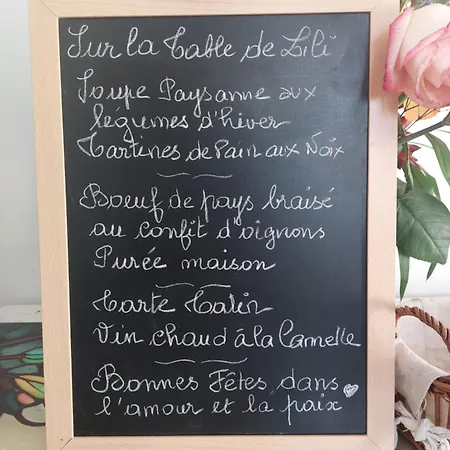 Sur la Table de Lili
Soupe Paysanne aux
légumes d'hiver
Tartines de Pain aux Noix
Boeuf de pays braisé
au confit d'oignons
Purée maison
Tarte Tatin
Vin chaud à la Cannelle
Bonnes Fêtes dans
l'amour et la paix